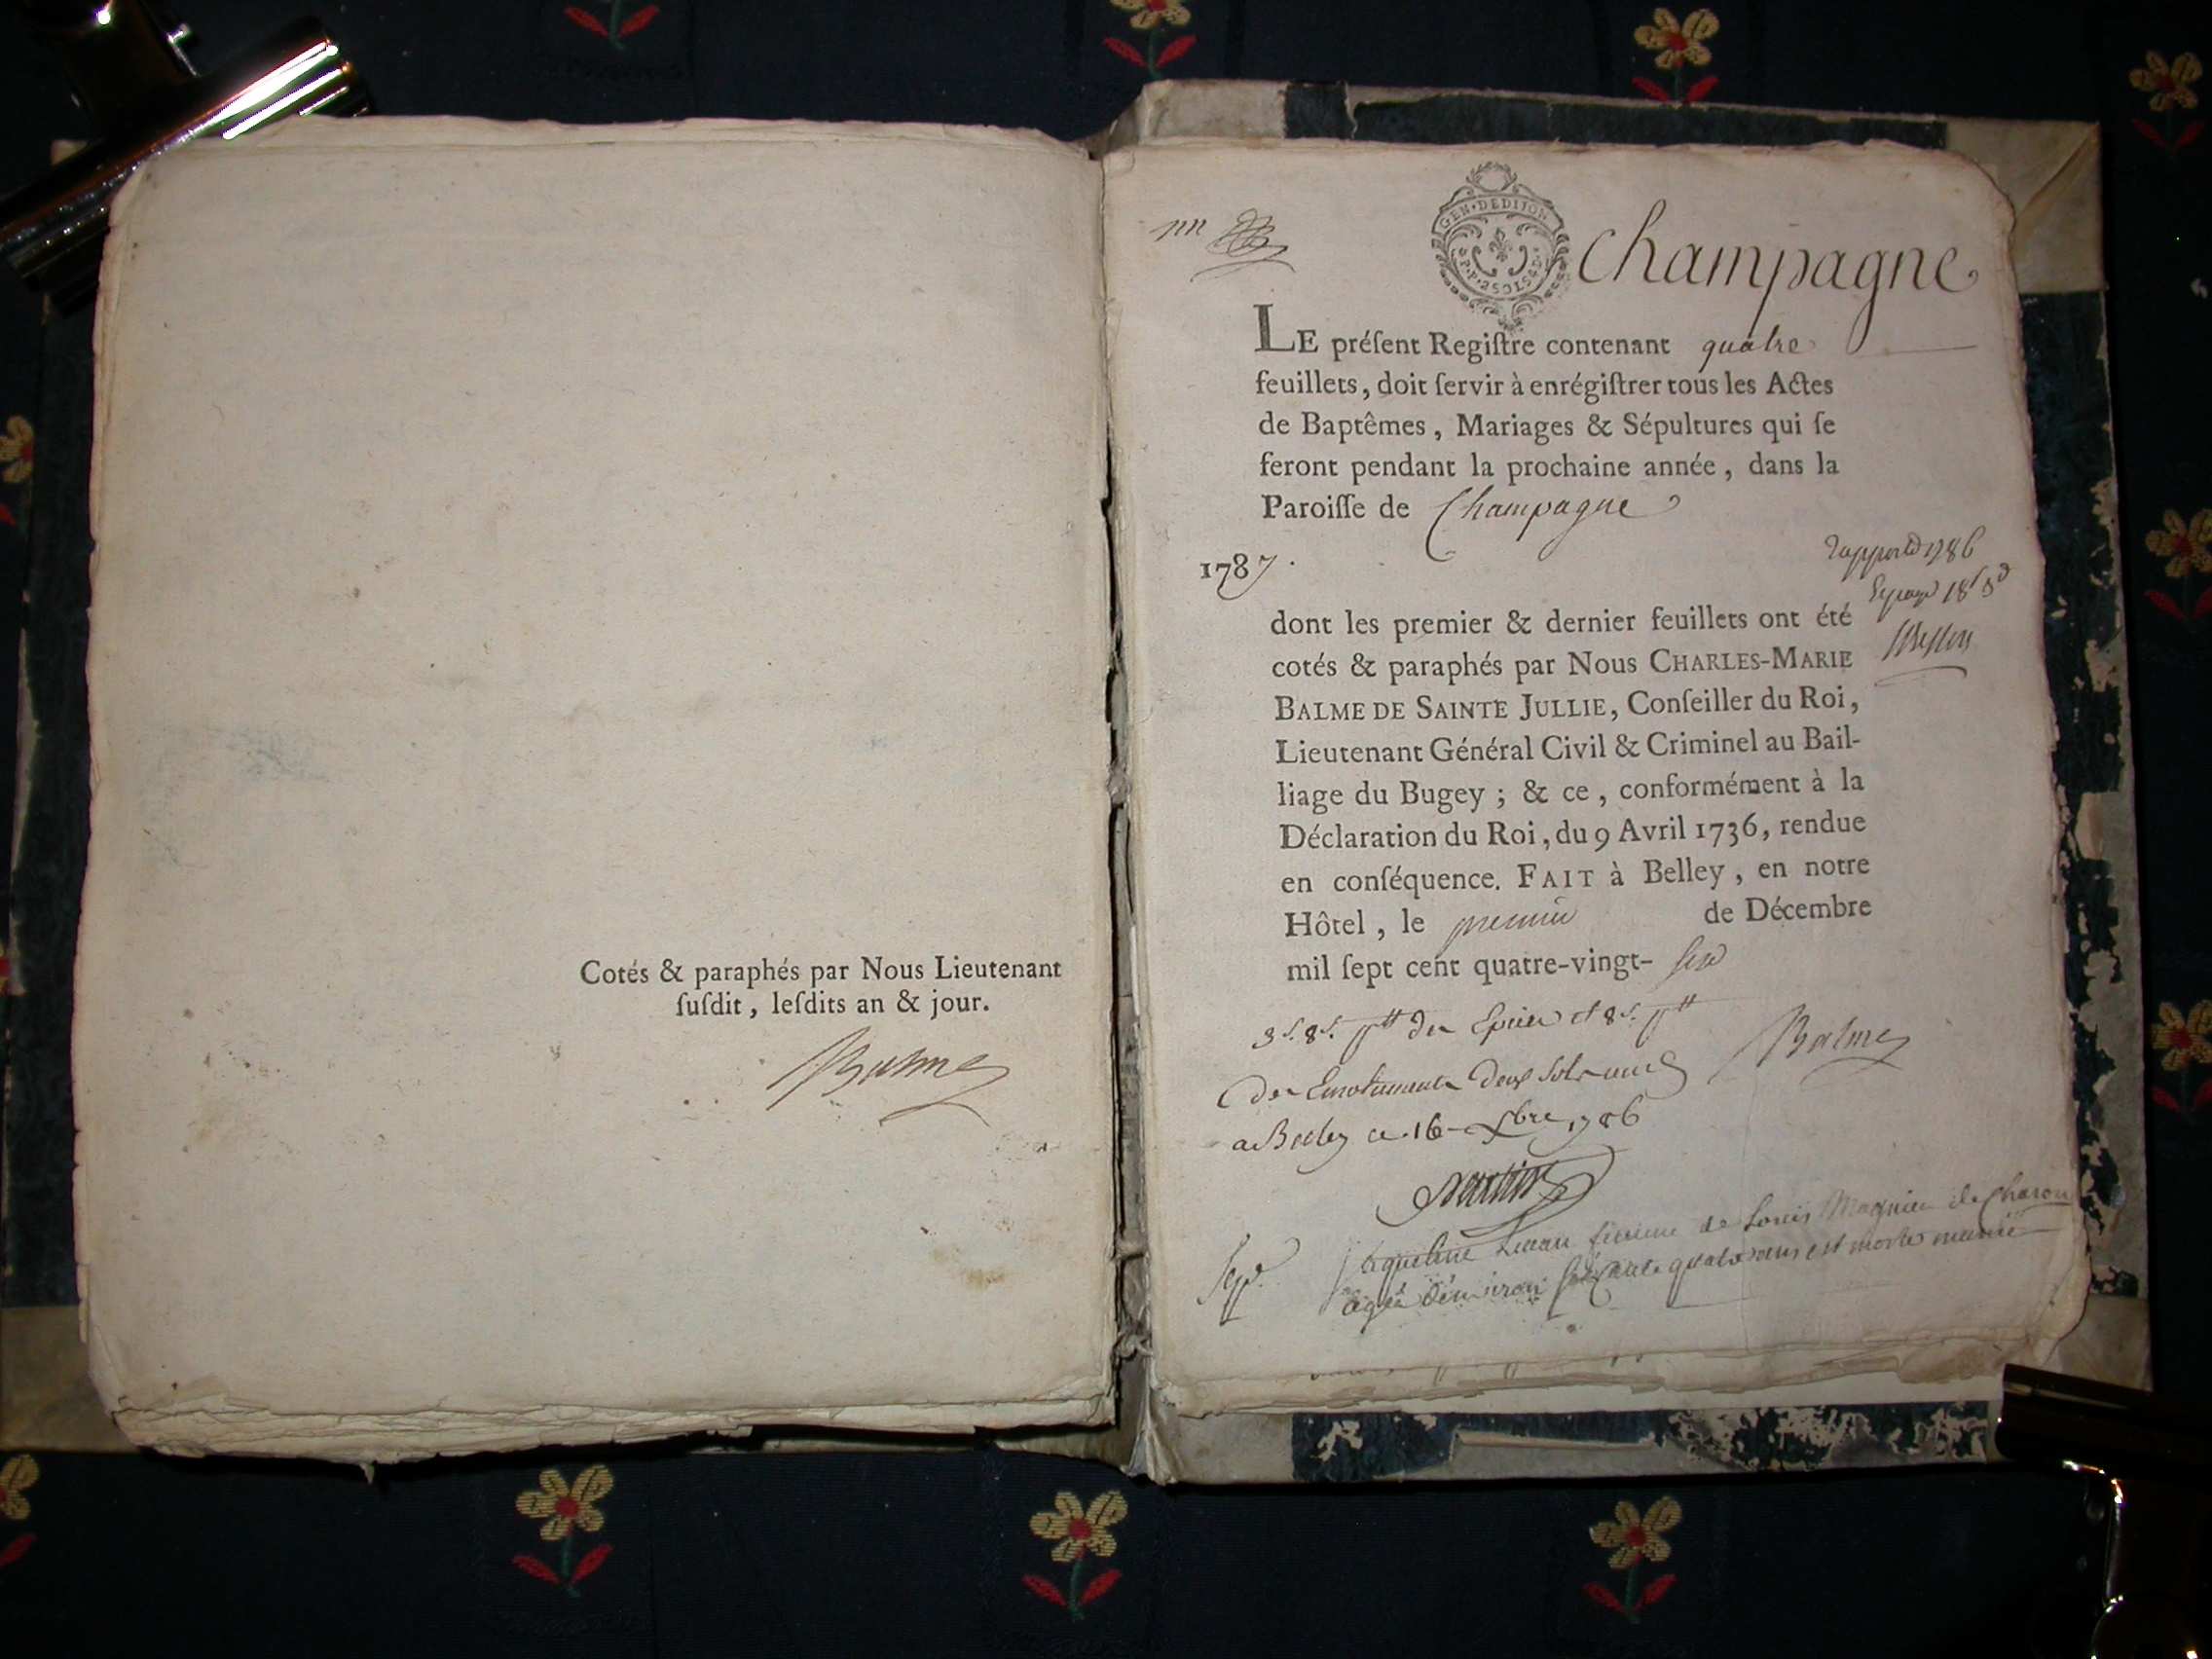 Cotés & paraphés par Nous Lieutenant
ſuſdit, leſdits an & jour.
Balme
GEN·DEDIJON
Champagne
LE préſent Regiſtre contenant quatre
feuillets, doit ſervir à enrégiſtrer tous les Actes
de Baptêmes, Mariages & Sépultures qui ſe
feront pendant la prochaine année, dans la
Paroiſſe de Champagne
1787.
1786
dont les premier & dernier feuillets ont été
cotés & paraphés par Nous CHARLES-MARIE
BALME DE SAINTE JULLIE, Conſeiller du Roi,
Lieutenant Général Civil & Criminel au Bail-
liage du Bugey ; & ce, conformément à la
Déclaration du Roi, du 9 Avril 1736, rendue
en conſéquence. FAIT à Belley, en notre
Hôtel, le premier de Décembre
mil ſept cent quatre-vingt- six
Balme
a Belley ce 16 Xbre 1786
jaqueline femme de Louis Magnin de Charon
agée denviron soixante quatre ans est morte munie